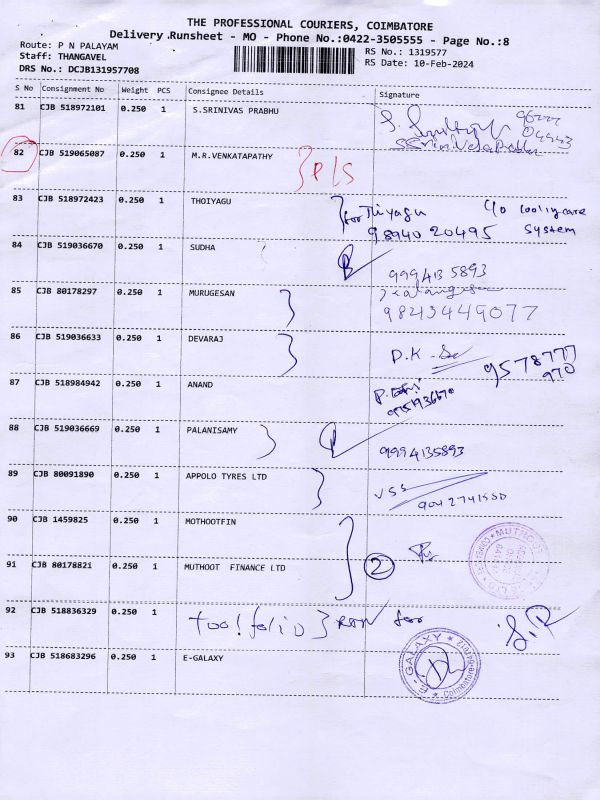 THE PROFESSIONAL COURIERS, COIMBATORE
Delivery Runsheet - MO - Phone No.:0422-3505555 - Page No.:8
Route: P N PALAYAM
Staff: THANGAVEL
DRS No.: DCJB131957708
RS No.: 1319577
RS Date: 10-Feb-2024
S No Consignment No Weight PCS Consignee Details Signature
81 CJB 518972101 0.250 1 S.SRINIVAS PRABHU
82 CJB 519065087 0.250 1 M.R.VENKATAPATHY P/S
83 CJB 518972423 0.250 1 THOIYAGU for Thiyagu C/o cooling care
98940 20495 System
84 CJB 519036670 0.250 1 SUDHA
9994135893
85 CJB 80178297 0.250 1 MURUGESAN
9843449077
86 CJB 519036633 0.250 1 DEVARAJ D.K
9578777
970
87 CJB 518984942 0.250 1 ANAND
88 CJB 519036669 0.250 1 PALANISAMY 9994135893
89 CJB 80091890 0.250 1 APPOLO TYRES LTD VSS
90 CJB 1459825 0.250 1 MOTHOOTFIN
MUTHOOT
91 CJB 80178821 0.250 1 MUTHOOT FINANCE LTD 2
92 CJB 518836329 0.250 1
93 CJB 518683296 0.250 1 E-GALAXY
E - GALAXY